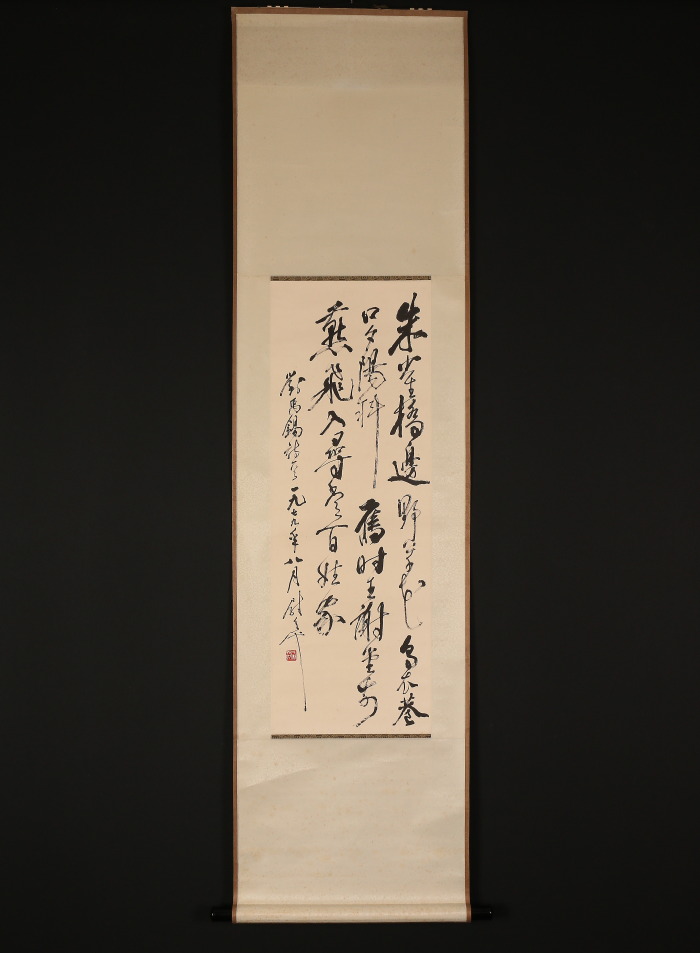 朱雀橋邊野草花烏衣巷
口夕陽斜舊时王謝堂前
燕飛入尋常百姓家
劉禹錫詩一九七九年八月